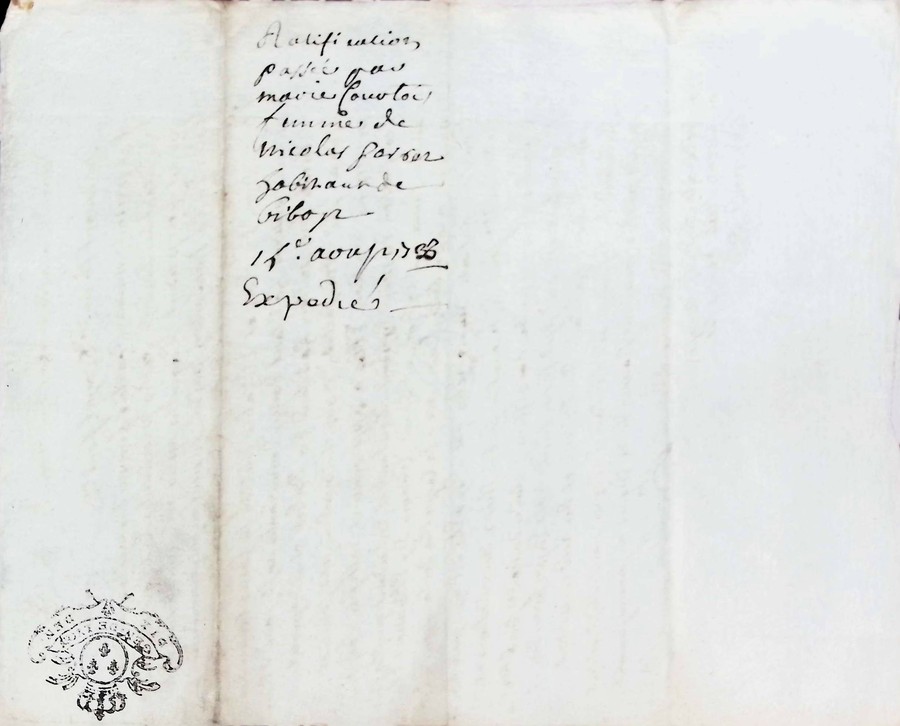 Ratification
passée par
marie Courtois
femme de
Nicolas
habitant de
15e. aoust 17
Expediés